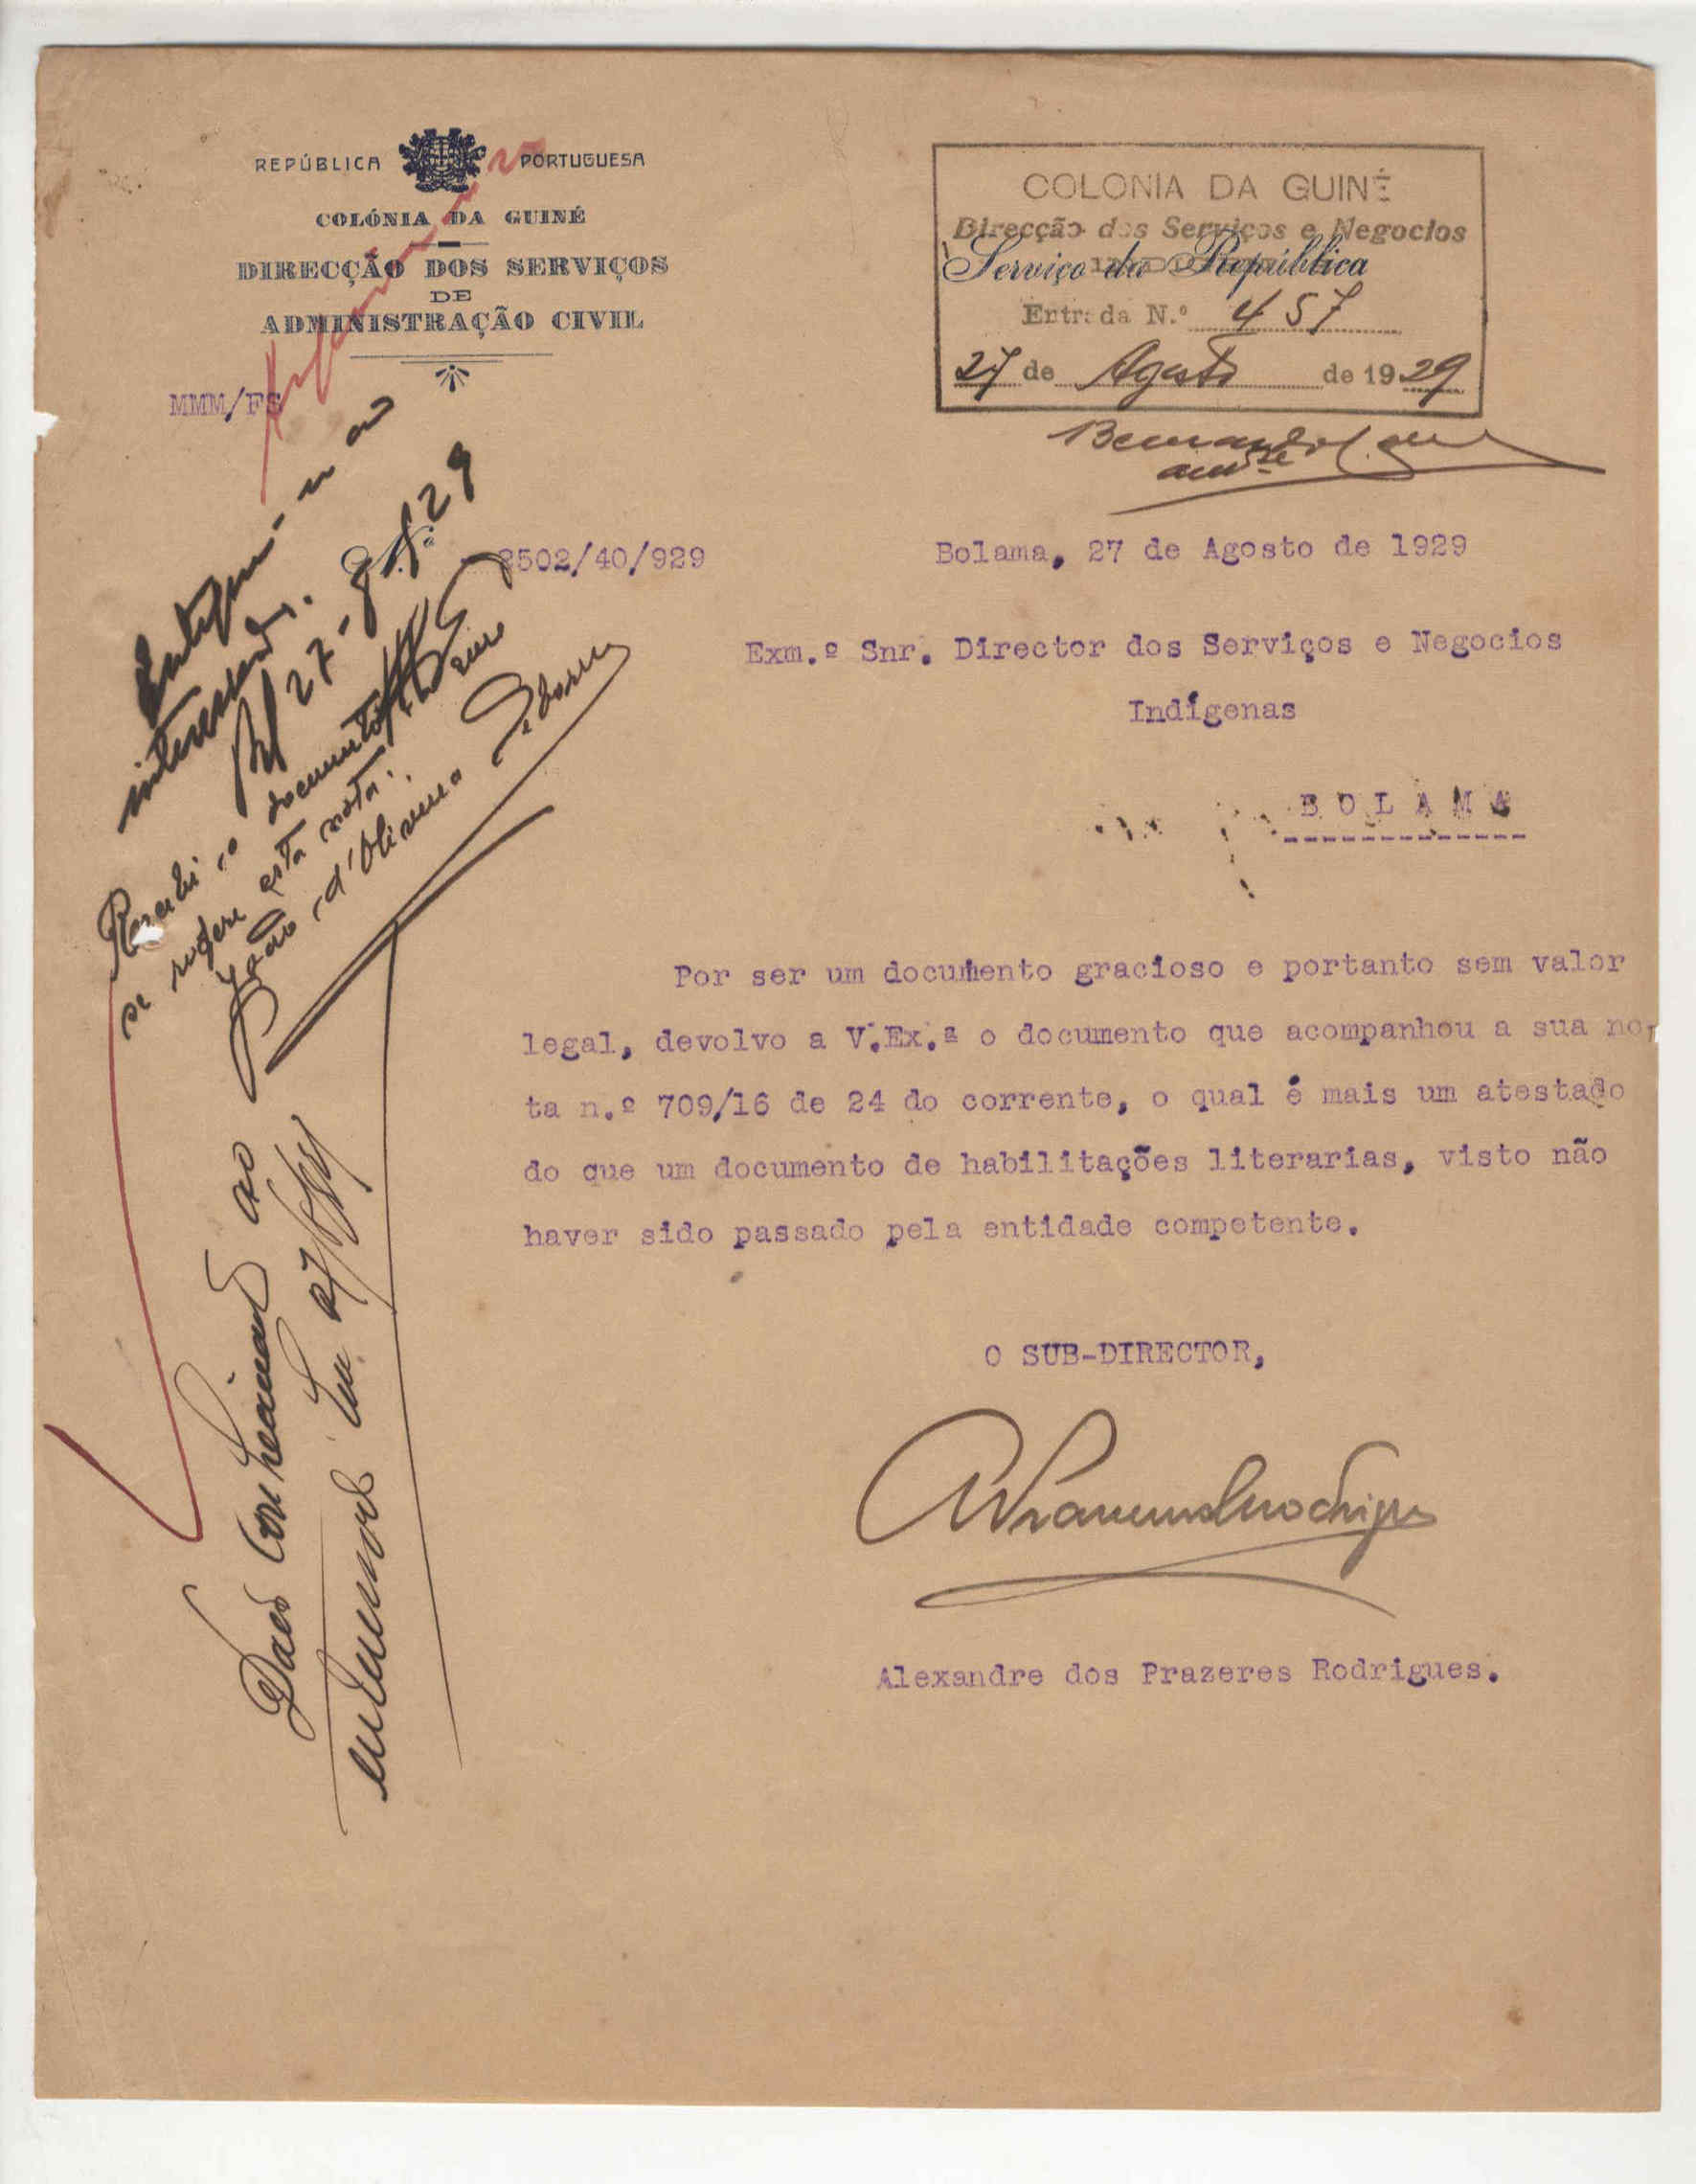 REPÚBLICA PORTUGUESA
COLÓNIA DA GUINÉ
DIRECÇÃO DOS SERVIÇOS
DE
ADMINISTRAÇÃO CIVIL
MMM/FS
COLONIA DA GUINÉ
Direcção dos Serviços e Negocios
Serviço da República
Entrada N.º 457
27 de Agosto de 1929
2502/40/929
Bolama, 27 de Agosto de 1929
Exm.º Snr. Director dos Serviços e Negocios
Indígenas
BOLAMA
Por ser um documento gracioso e portanto sem valor
legal, devolvo a V.Ex.ª o documento que acompanhou a sua no-
ta n.º 709/16 de 24 do corrente, o qual é mais um atestado
do que um documento de habilitações literarias, visto não
haver sido passado pela entidade competente.
O SUB-DIRECTOR,
Alexandre dos Prazeres Rodrigues.
ao
interessado.
27-8-29
Recebi o documento
se refere esta nota.
João d'Oliveira
Dado conhecimento ao